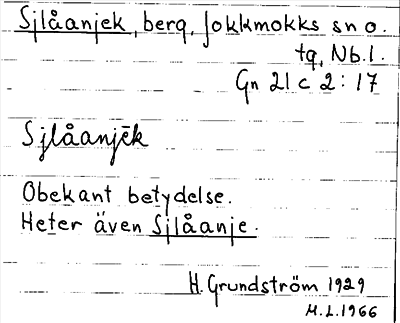 Sjlåanjek, berg, Jokkmokks sn o.
tg, Nb.l.
Gn 21 c 2:17
Sjlåanjēk
Obekant betydelse.
Heter även Sjlåanje.
H. Grundström 1929
M.L.1966